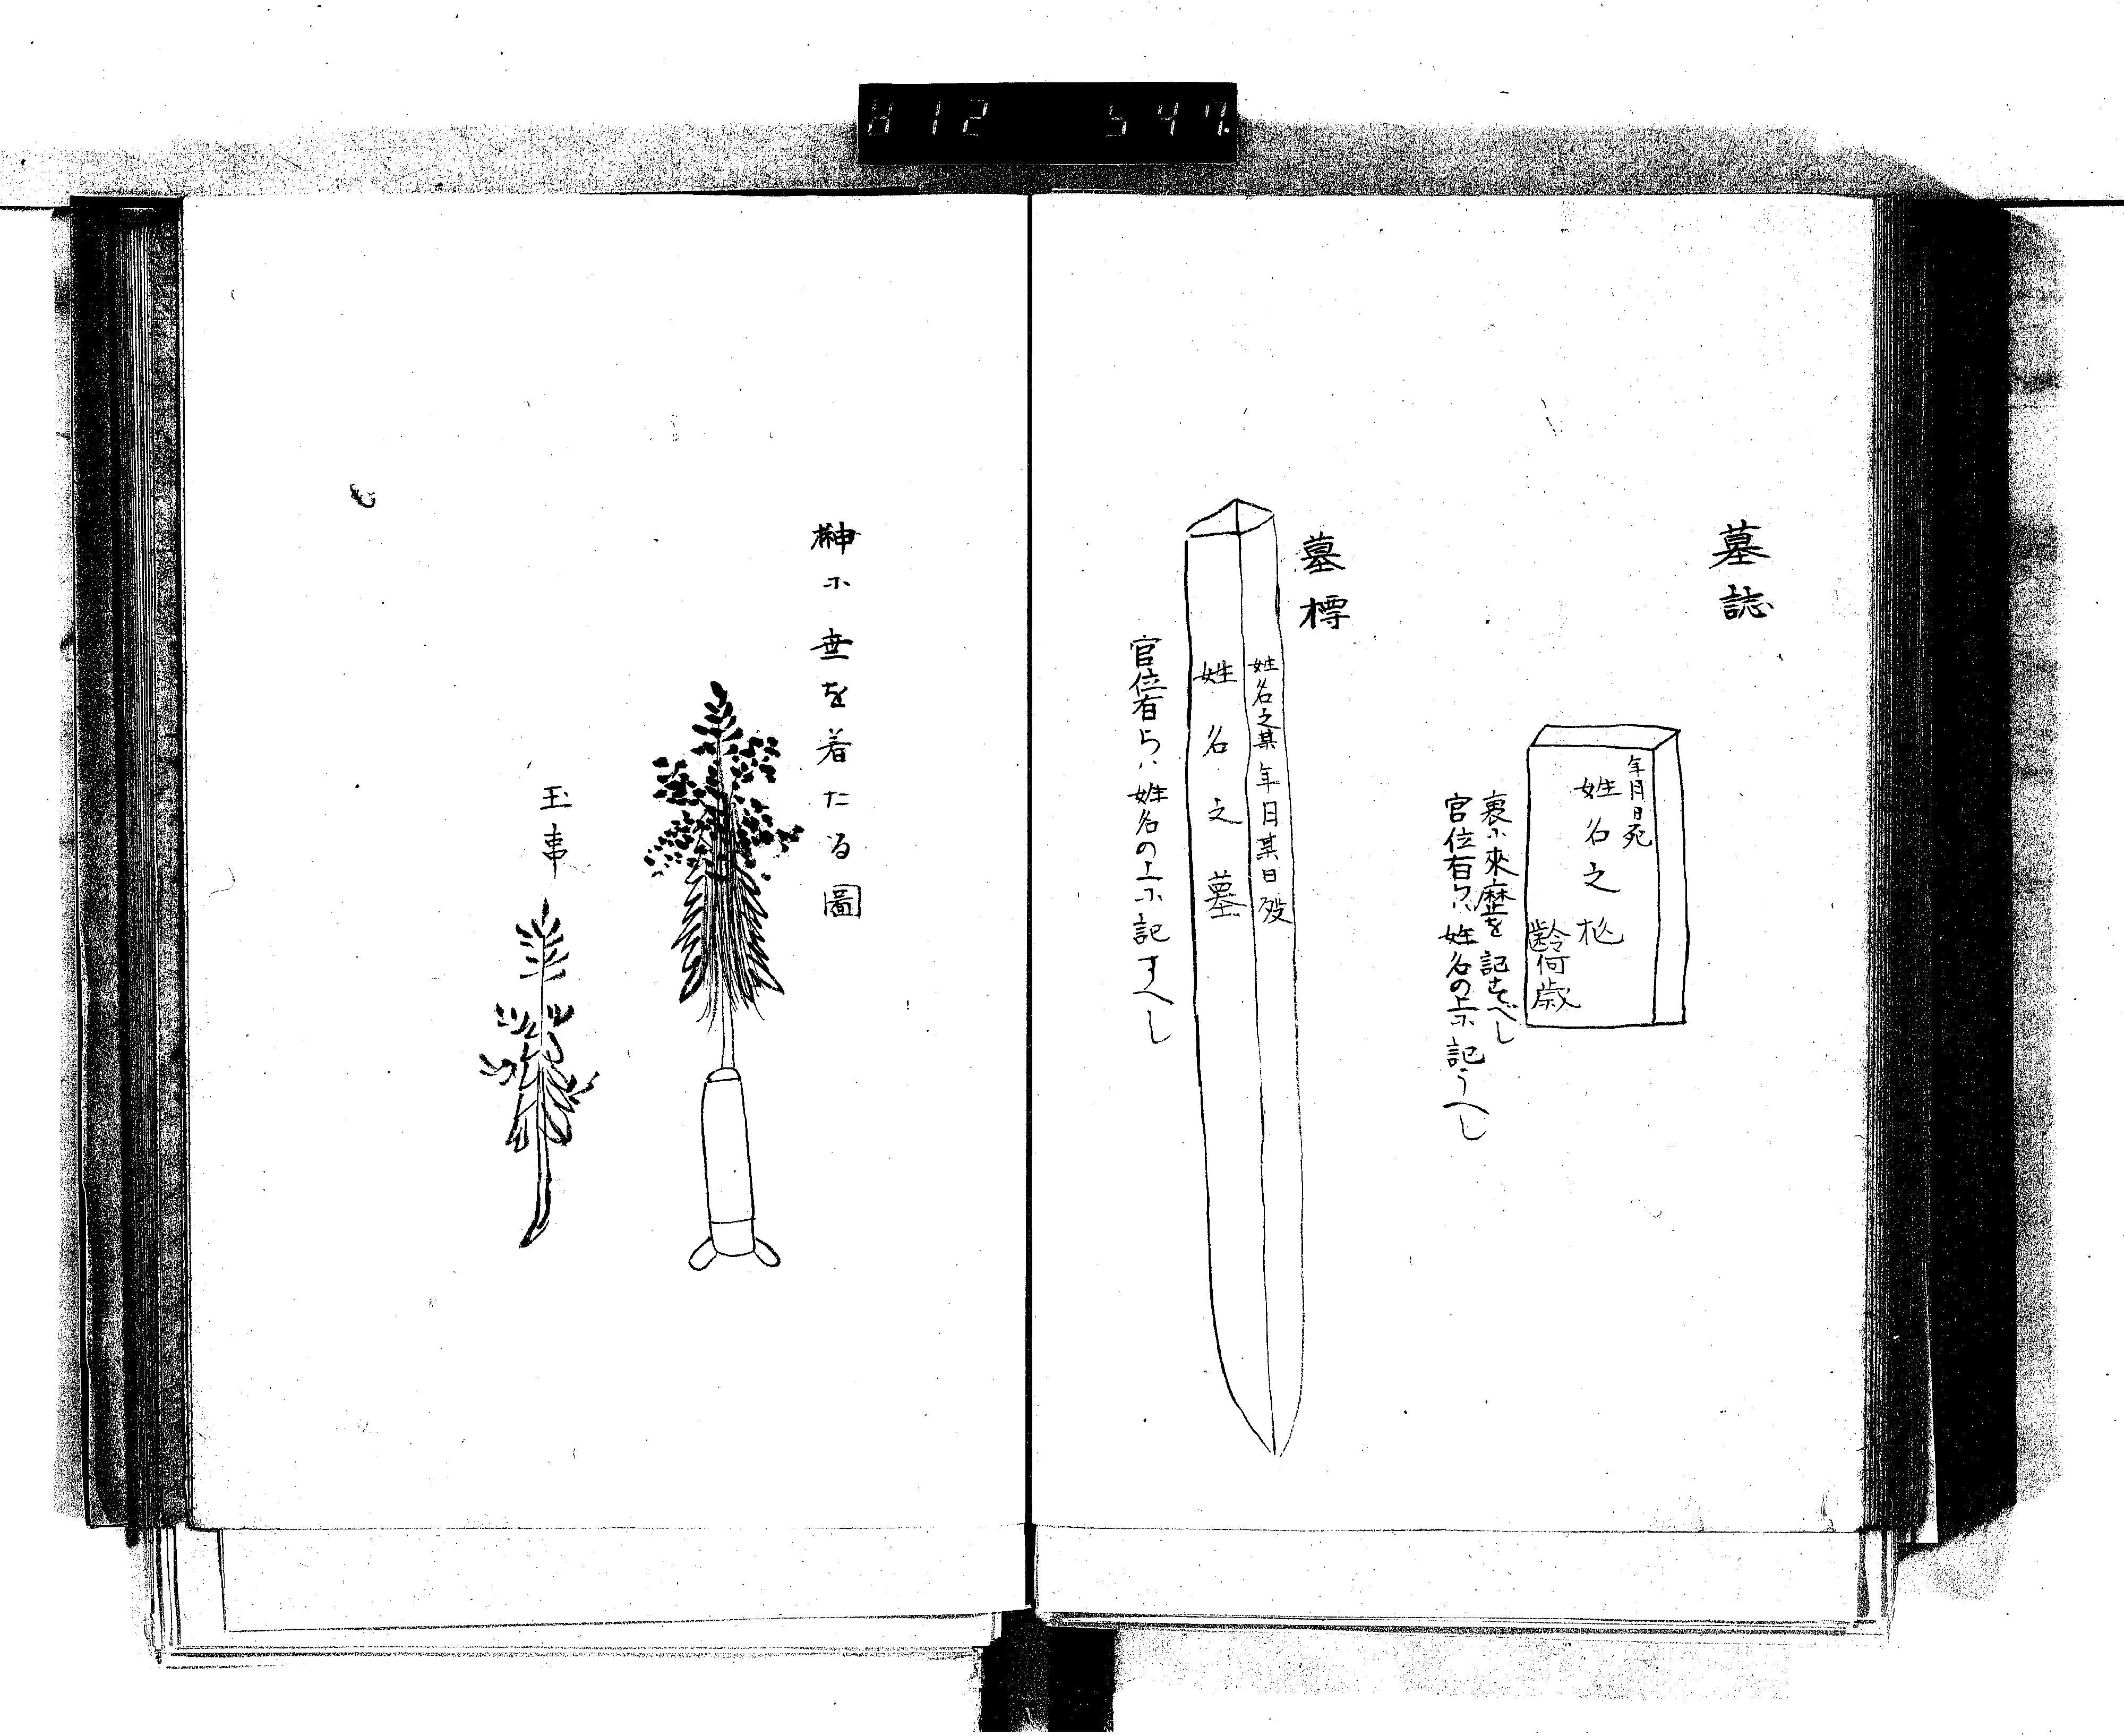 812 547
墓誌
年月日死
姓名之柩
齡何歳
裏ニ來歴を記すべし
官位有らハ姓名の上ニ記すへし
墓標
姓名之某年月某日歿
姓名之墓
官位有らハ姓名の上ニ記すへし
榊ホ垂を着たる圖
玉串